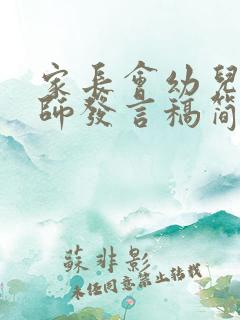 家長會幼兒
師發言稿简
蘇非影
未经同意禁止转载